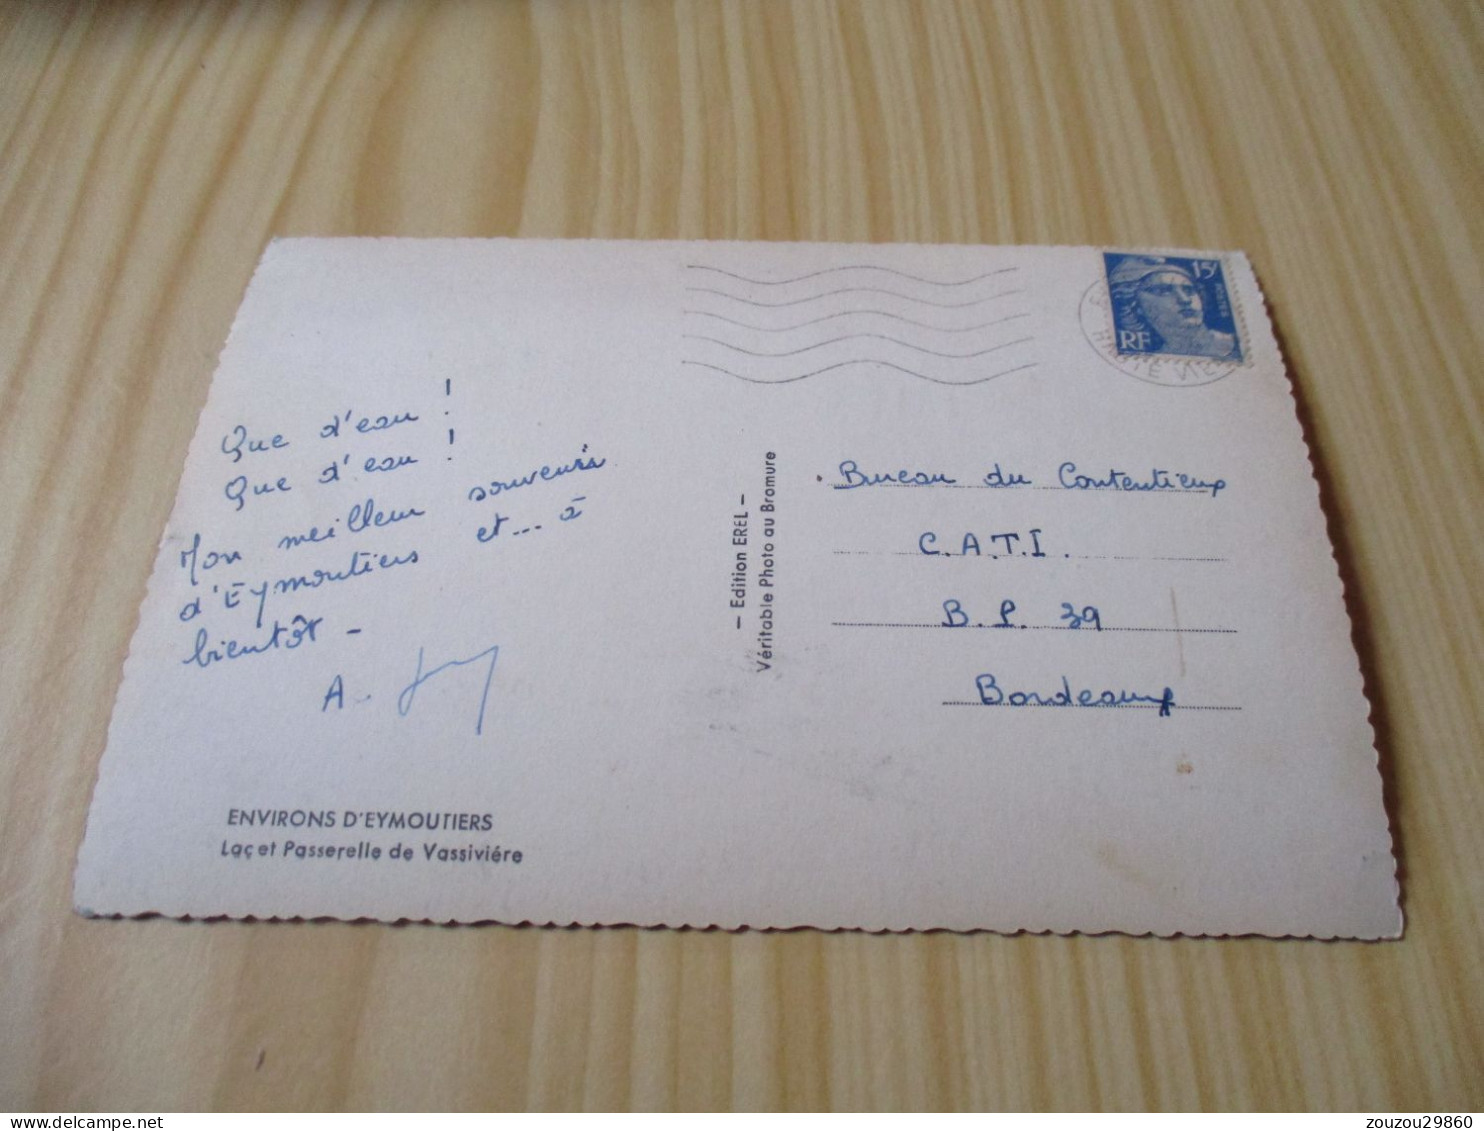 15F
RF
HTE VIE
Que d'eau !
Que d'eau !
Mon meilleur souvenir
d'Eymoutiers et... à
bientôt -
A.
- Edition EREL -
Véritable Photo au Bromure
Bureau du Contentieux
C.A.T.I.
B.P. 39
Bordeaux
ENVIRONS D'EYMOUTIERS
Laç et Passerelle de Vassiviére
zouzou29860